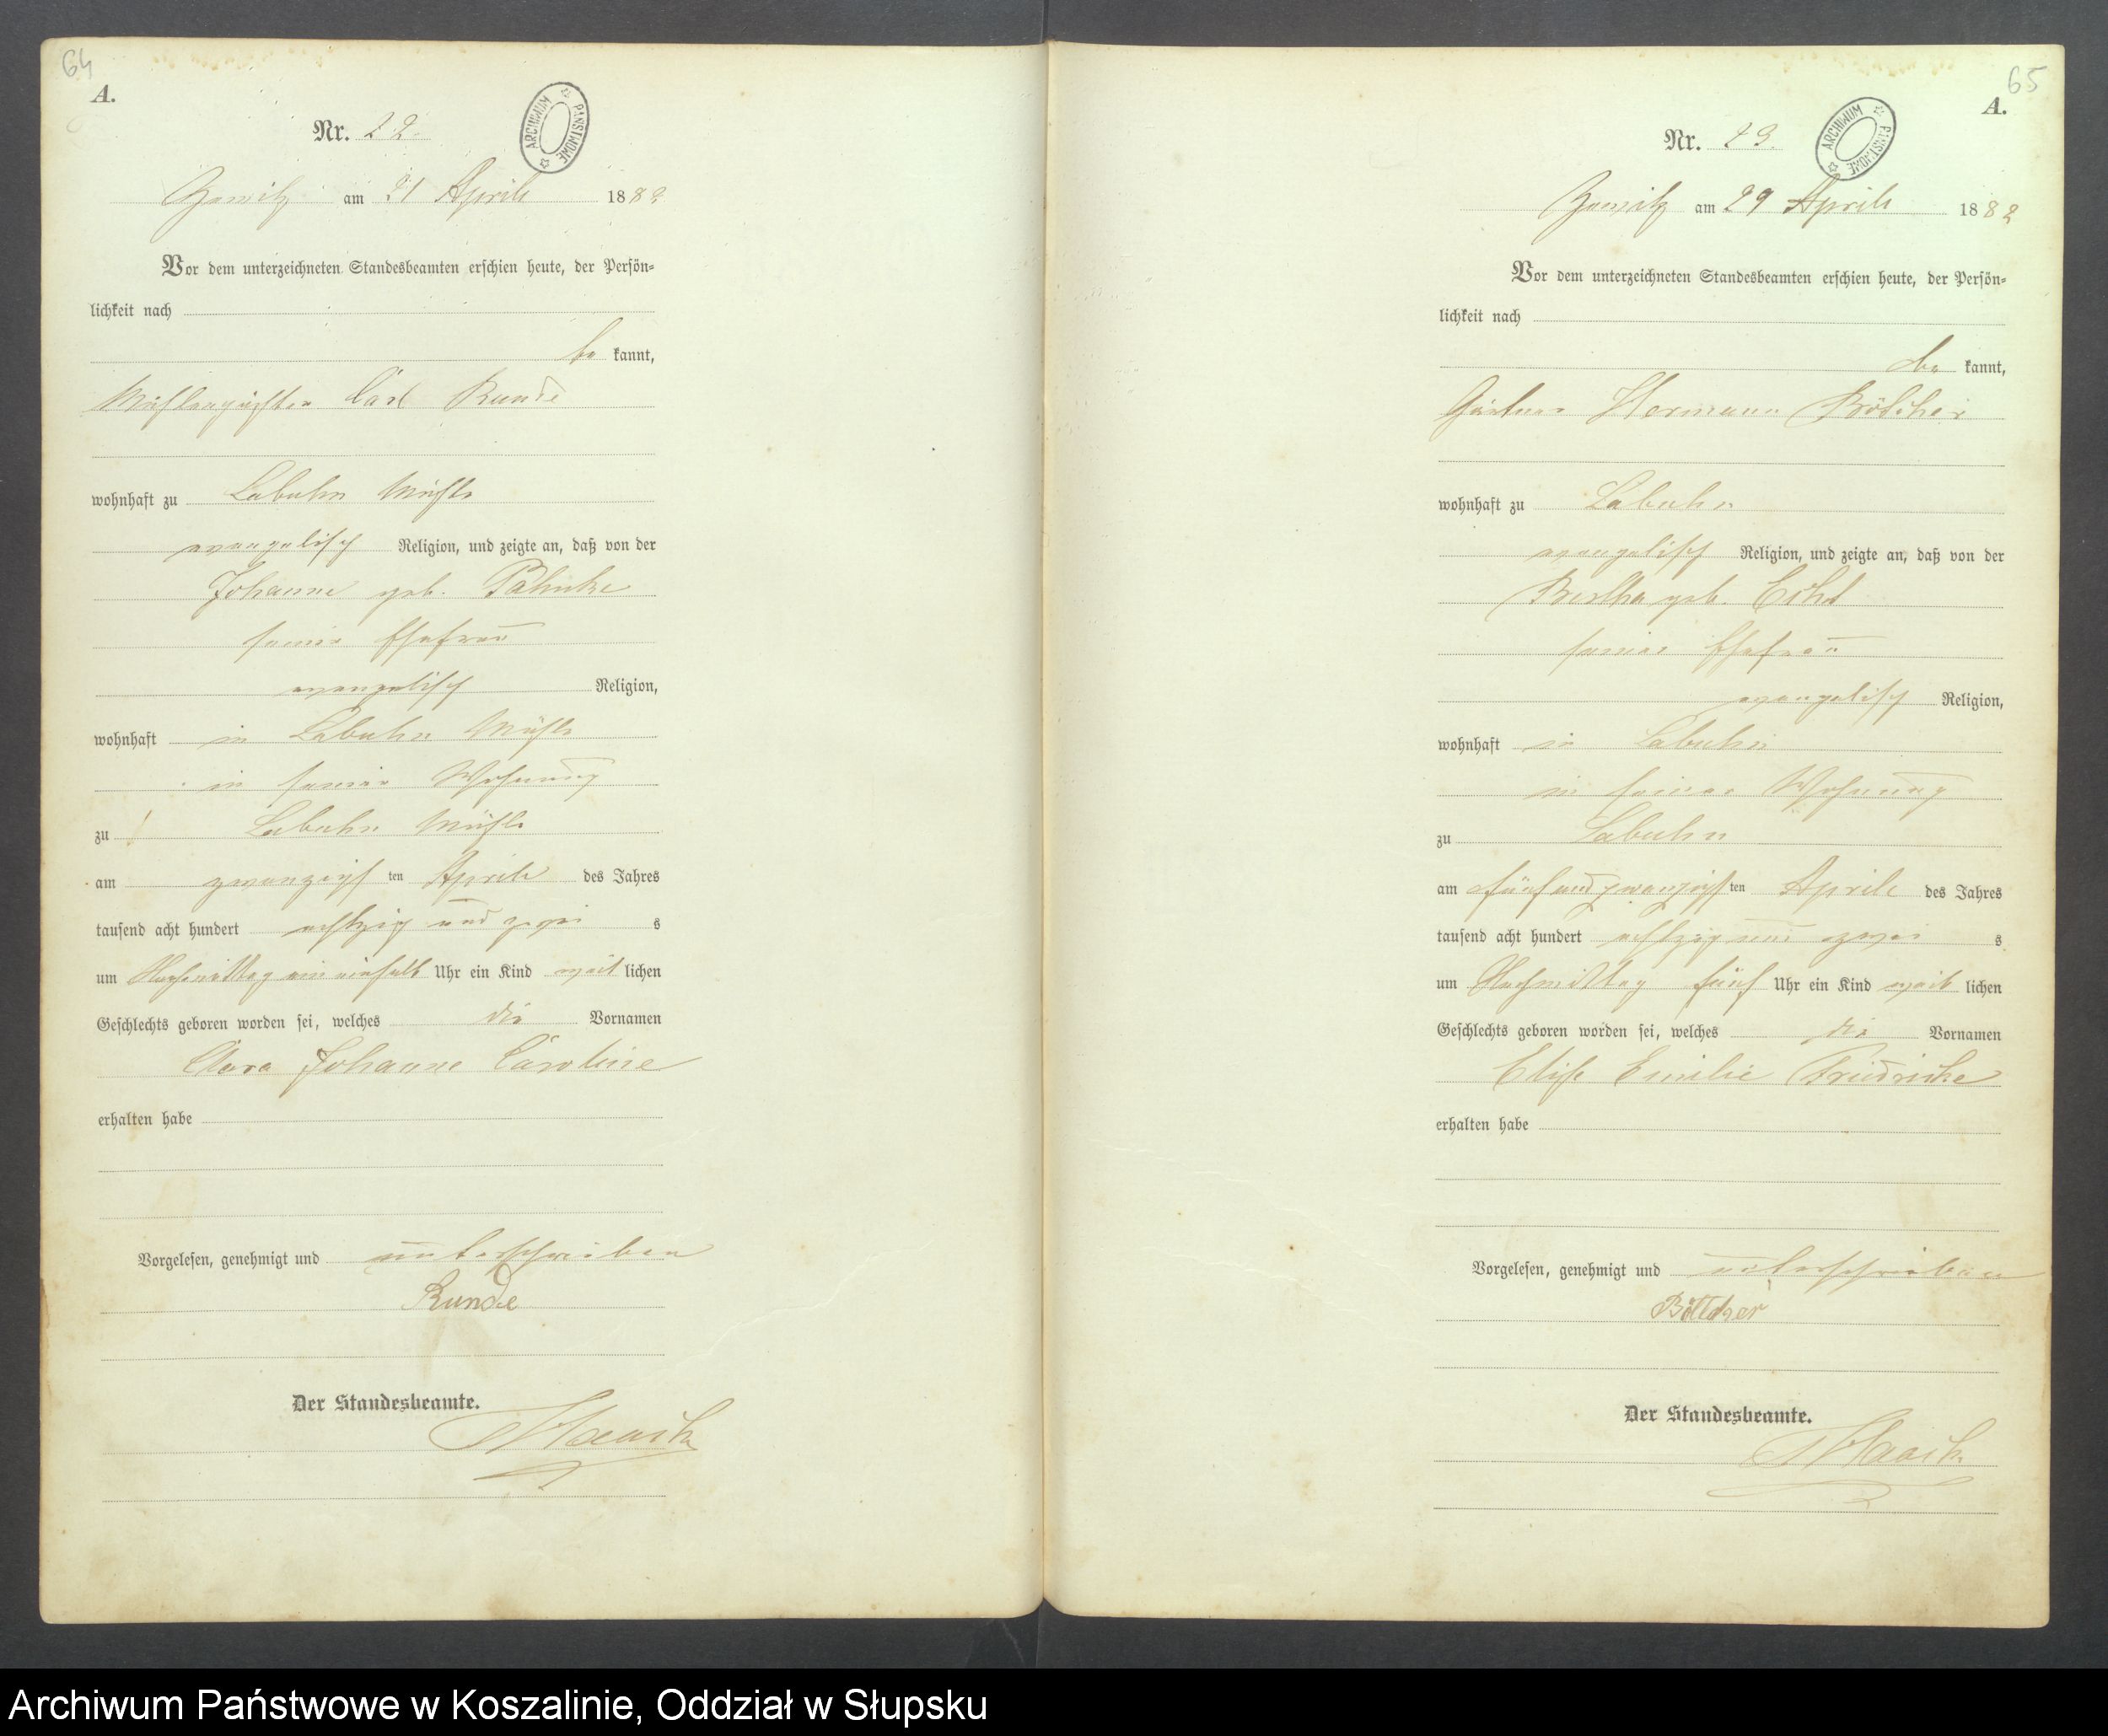 64
A.
Nr. 22.
ARCHIWUM PAŃSTWOWE
Zewitz am 21 April 1882
Vor dem unterzeichneten Standesbeamten erschien heute, der Persön=
lichkeit nach
be kannt,
Mühlenpächter Carl Runde
wohnhaft zu Labuhn Mühle
evangelisch Religion, und zeigte an, daß von der
Johanne geb. Pahnke
seiner Ehefrau
evangelisch Religion,
wohnhaft in Labuhn Mühle
in seiner Wohnung
zu Labuhn Mühle
am zwanzigs ten April des Jahres
tausend acht hundert achtzig und zwei s
um Nachmittag ein einhalb Uhr ein Kind weib lichen
Geschlechts geboren worden sei, welches die Vornamen
Clara Johanne Caroline
erhalten habe
Vorgelesen, genehmigt und unterschrieben
Runde
Der Standesbeamte.
65
A.
Nr. 23.
ARCHIWUM PAŃSTWOWE
Zewitz am 29 April 1882
Vor dem unterzeichneten Standesbeamten erschien heute, der Persön=
lichkeit nach
be kannt,
Gärtner Hermann Bötcher
wohnhaft zu Labuhn
evangelisch Religion, und zeigte an, daß von der
Bertha geb.
seiner Ehefrau
evangelisch Religion,
wohnhaft in Labuhn
in seiner Wohnung
zu Labuhn
am fünfundzwanzigs ten April des Jahres
tausend acht hundert achtzig und zwei s
um Nachmittag fünf Uhr ein Kind weib lichen
Geschlechts geboren worden sei, welches die Vornamen
Elise Emilie Friedricke
erhalten habe
Vorgelesen, genehmigt und unterschrieben
Böttcher
Der Standesbeamte.
Archiwum Państwowe w Koszalinie, Oddział w Słupsku